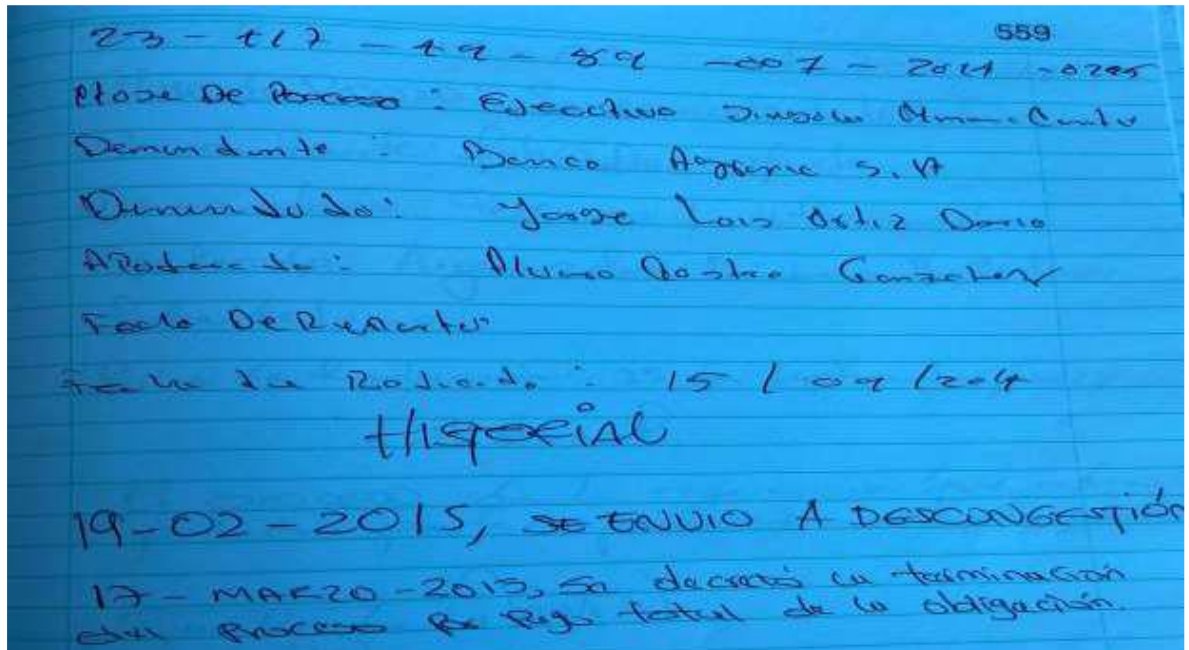 559
23-417-49-89-001-2014-0295
Clase De Proceso: Ejecutivo Singular
Demandante: Banco Agrario S.A
Demandado: Jorge Luis Ortiz
Apoderado: Alvaro Castro Gonzalez
Fecha De Reparto:
Fecha de Radicado: 15/09/2014
19-02-2015, SE ENVIO A DESCONGESTIÓN
17-MARZO-2015, Se decretó la terminación
del proceso por pago total de la obligación.